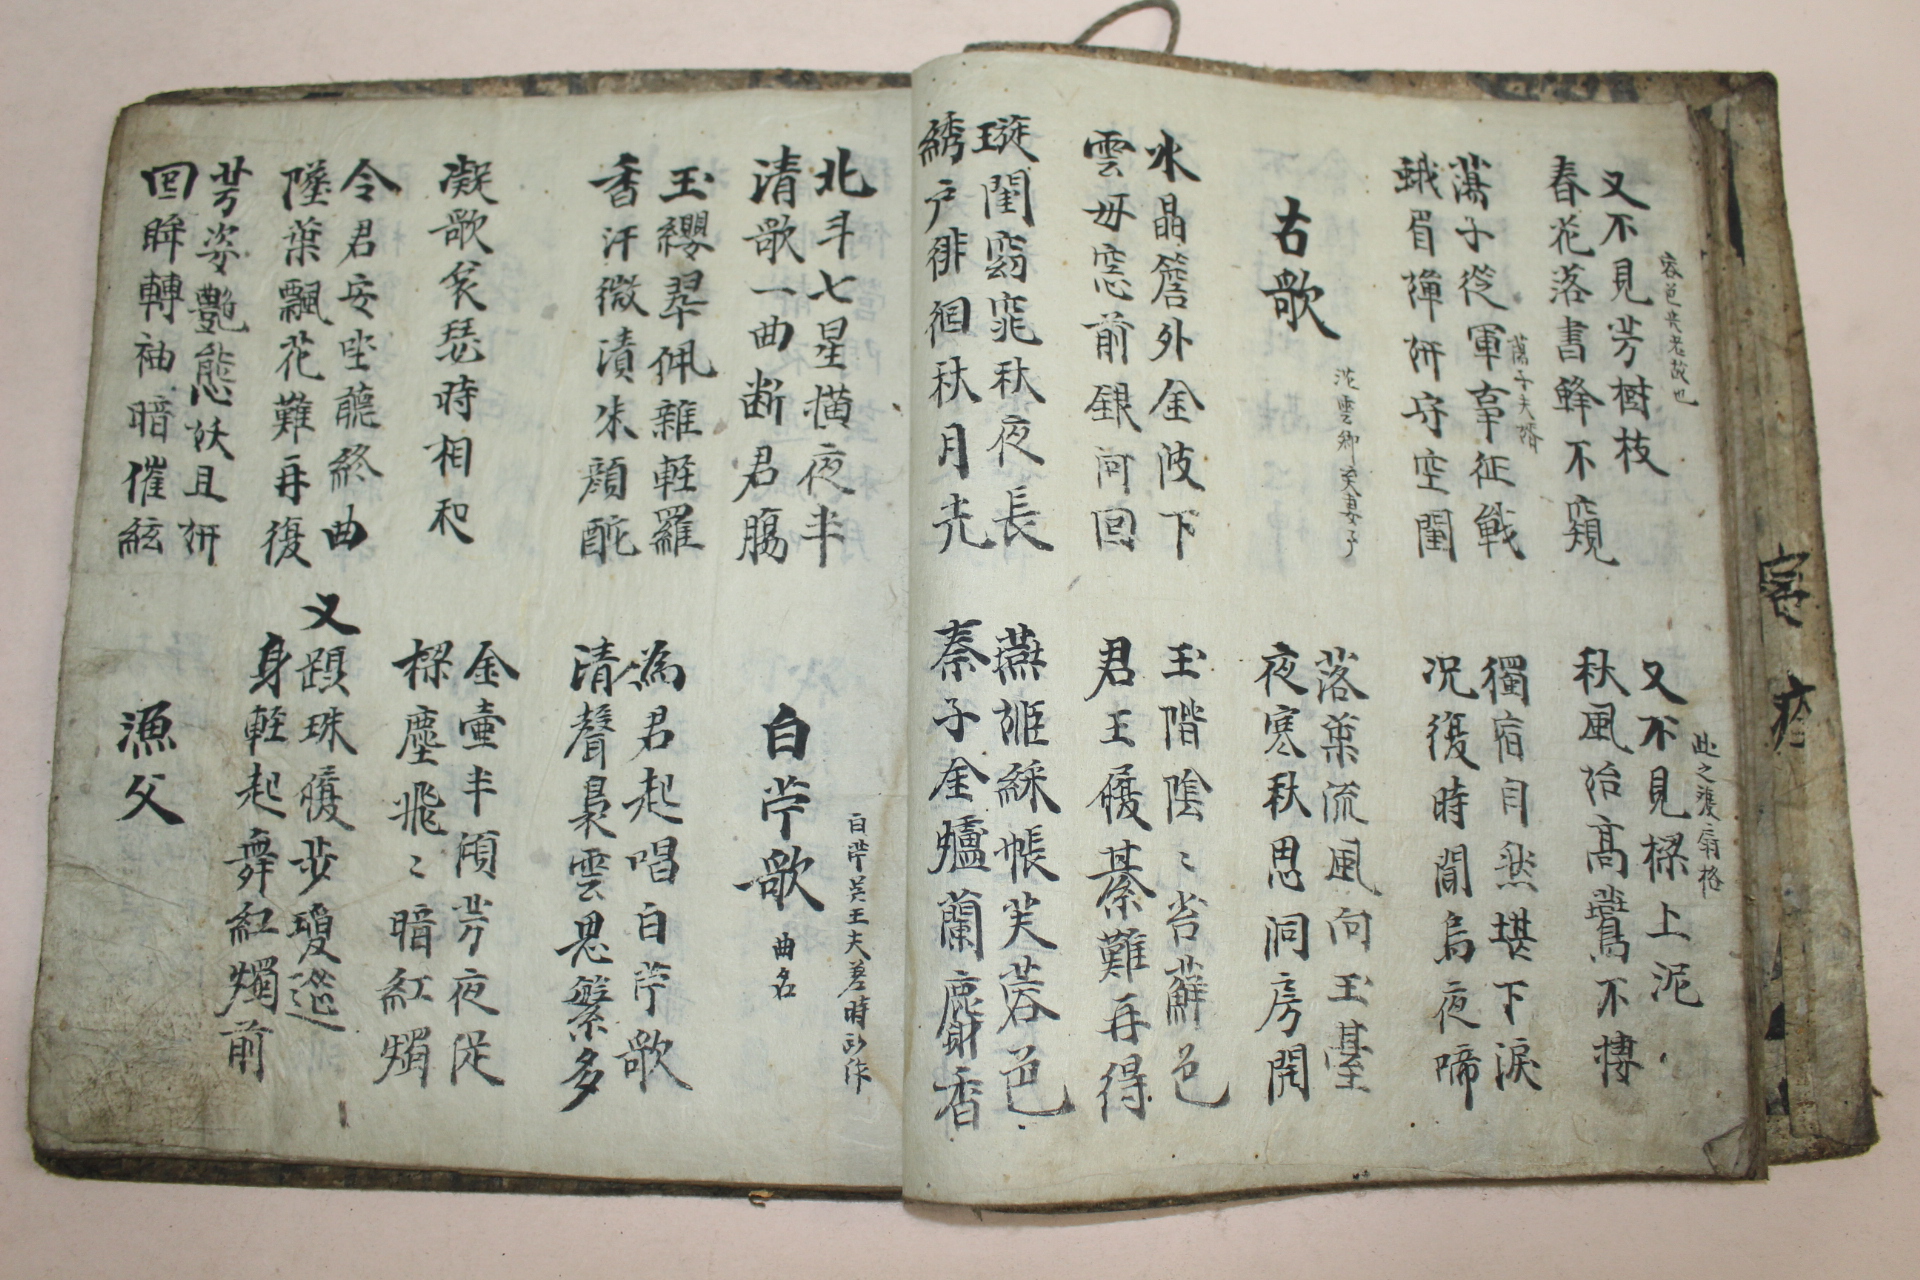 又不見芳樹枝
春花落書蜂不窺
容色喪老故也
又不見樑上泥
秋風始高鷰不棲
此之後扇格
蕩子從軍事征戰
蕩子夫婿
蛾眉嬋妍守空閨
獨宿自然堪下淚
況復時聞烏夜啼
古歌
沈雲卿
落葉流風向玉臺
夜寒秋思洞房開
水晶簷外金波下
雲母窓前銀河回
玉階陰〻苔蘚色
君王履綦難再得
璇閨窈窕秋夜長
綉户徘徊秋月光
燕姬綵帳芙蓉色
秦子金爐蘭麝香
北斗七星橫夜半
清歌一曲断君腸
白苧歌
曲名
白苧吴王夫差時所作
玉纓翠佩雜輕羅
香汗微漬朱顔酡
為君起唱白苧歌
清聲裊雲思繁多
凝歌哀瑟時相和
金壷半傾芳夜促
樑塵飛〻暗紅燭
令君安坐聽終曲
墜葉飄花難再復
又
躡珠履步瓊筵
身輕起舞紅燭前
芳姿艷態妖且妍
回眸轉袖暗催絃
漁父